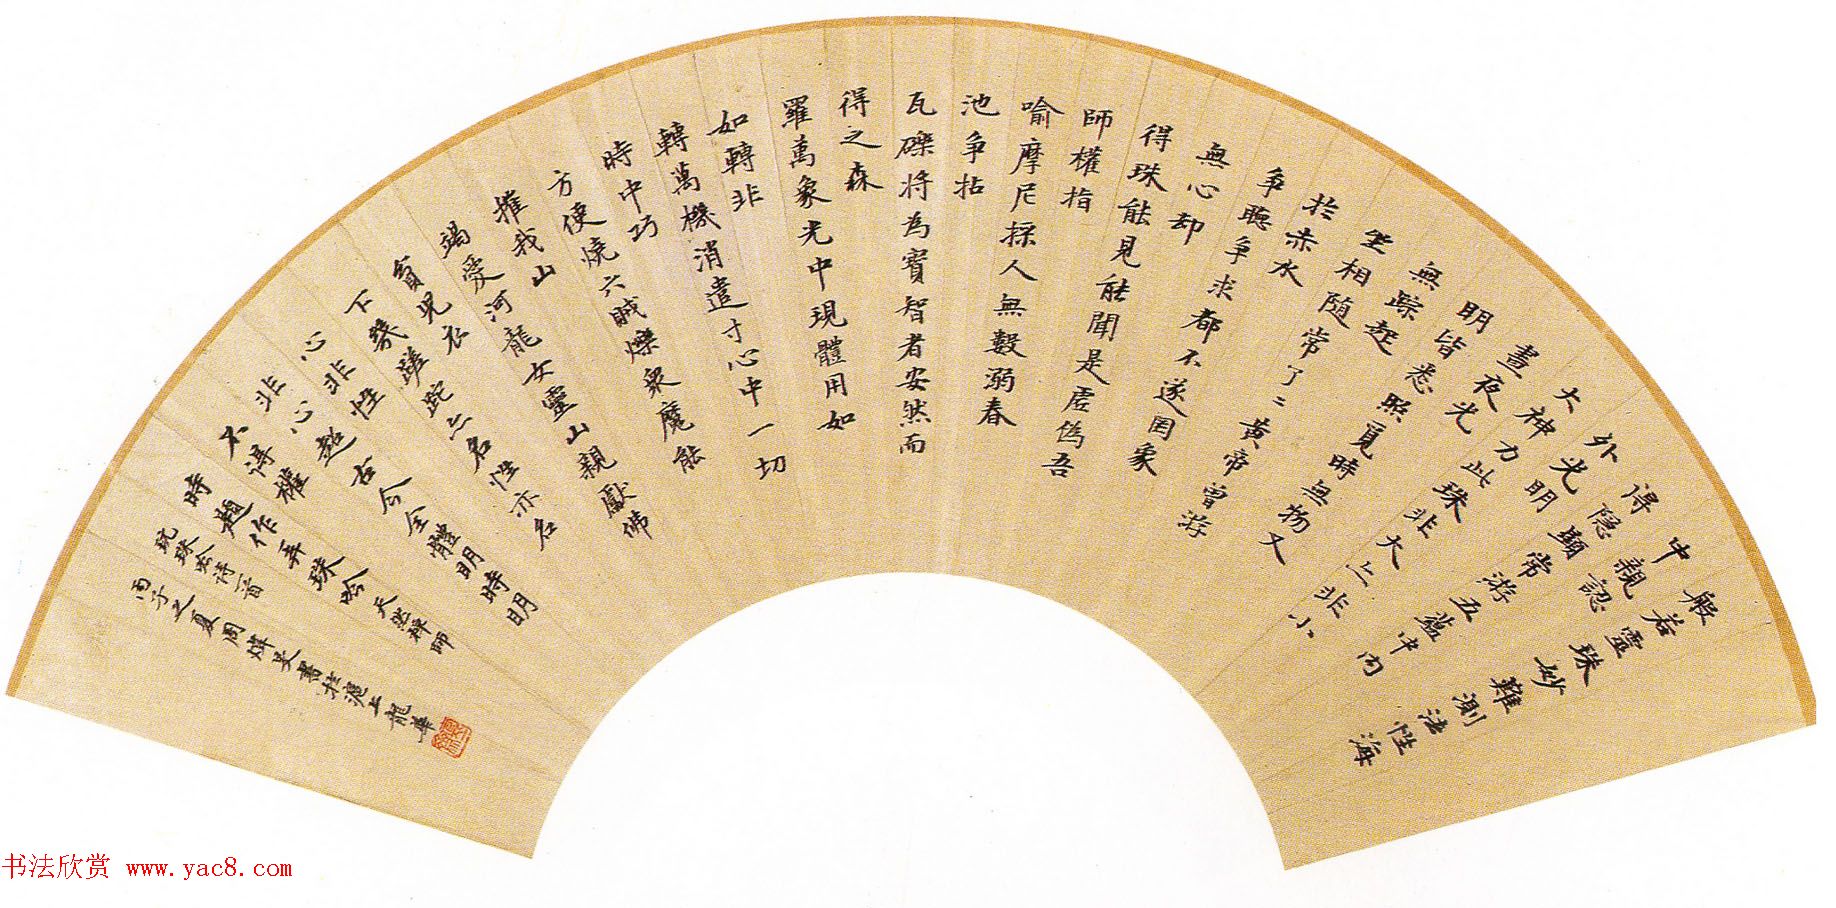 般若靈珠妙難測法性海
中親認
得隱顯常游五蘊中內
外光明
大神力此珠非大亦非小
晝夜光
明皆悉照覓時無物又
無踪起
坐相隨常了〻黃帝曾游
於赤水
爭聽爭求都不遂罔象
無心却
得珠能見能聞是虛偽吾
師權指
喻摩尼採人無數溺春
池爭拈
瓦礫將為寶智者安然而
得之森
羅萬象光中現體用如
如轉非
轉萬機消遣寸心中一切
時中巧
方便燒六賊爍衆魔能
摧我山
竭愛河龍女靈山親獻佛
貧兒衣
下幾蹉跎亦名性亦名
心非性
非心超古今全體明時明
不得權
時題作弄珠吟 天然禅師
玩珠吟詩一首
丙子之夏周書於滬上龍華
书法欣赏 www.yac8.com